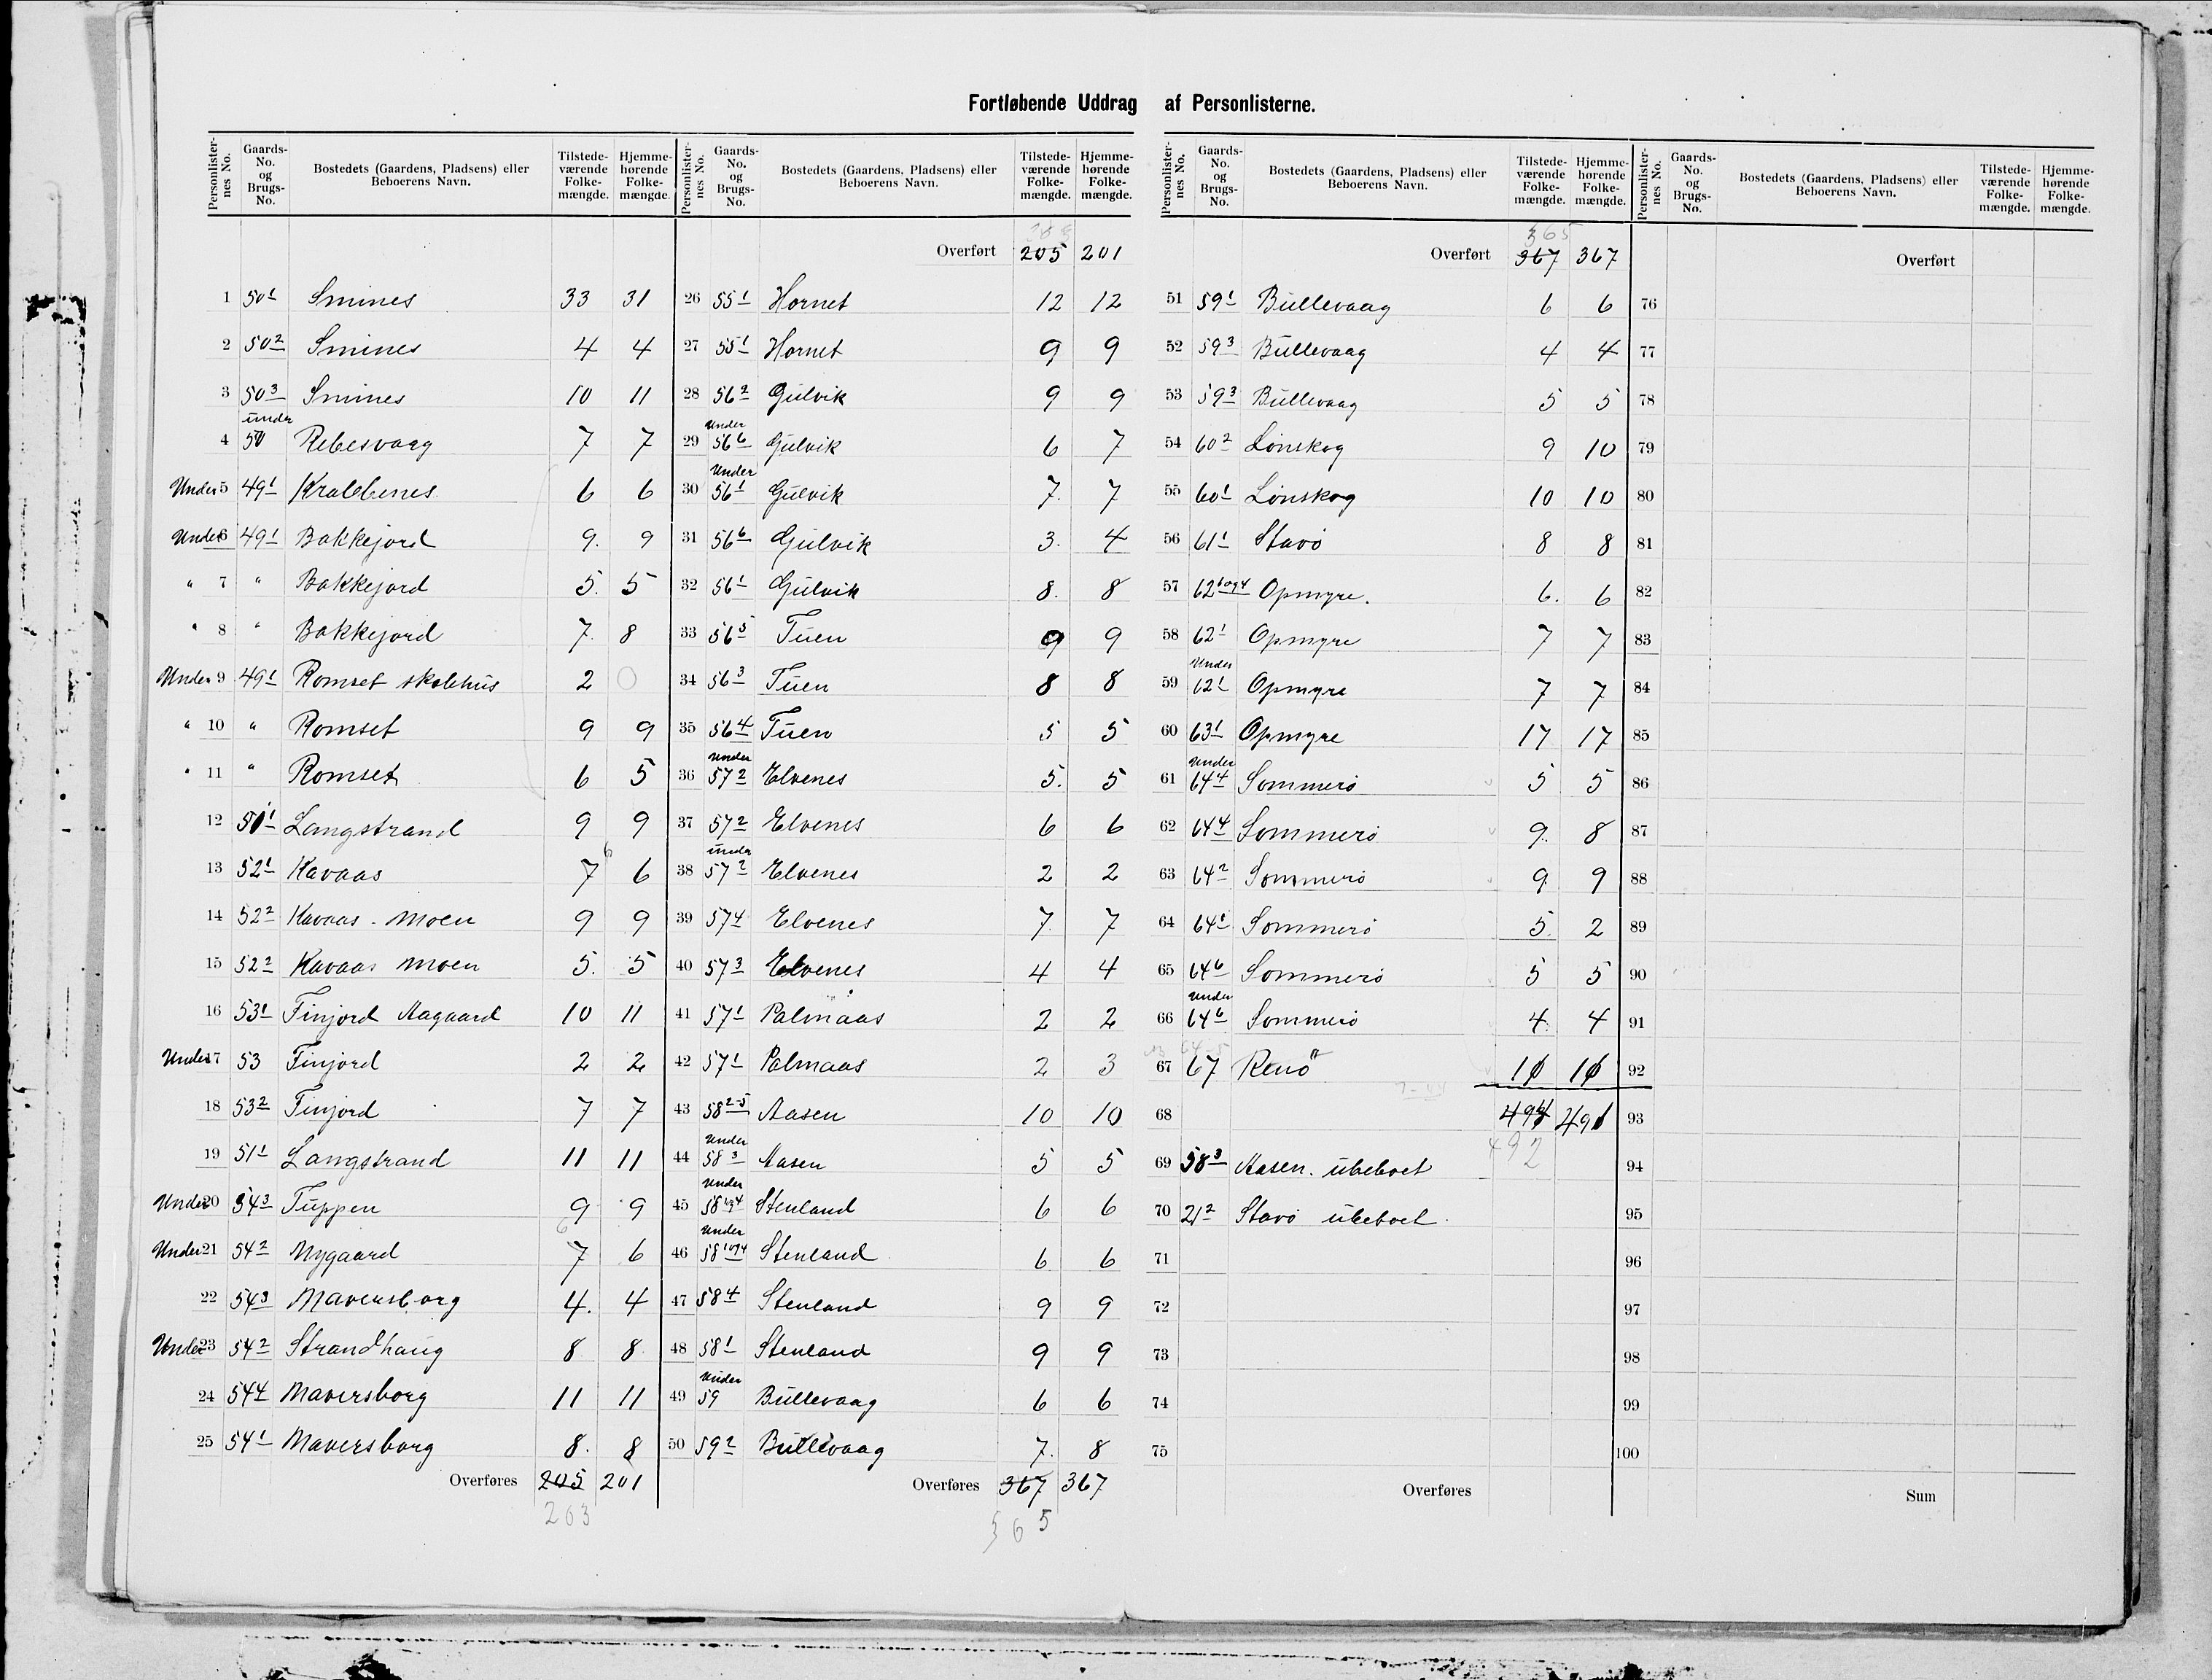 Fortløbende Uddrag af Personlisterne.
Personlister-nes No. Gaards-No. og Brugs-No. Bostedets (Gaardens, Pladsens) eller Beboerens Navn. Tilstede-værende Folke-mængde. Hjemme-hørende Folke-mængde.
1 50 1 Smines 33 31
2 50 2 Smines 4 4
3 50 3 Smines 10 11
4 under 50 Rebesvaag 7 7
Under 5 49 1 Krabbenes 6 6
Under 6 49 1 Bakkejord 9. 9
" 7 " Bakkejord 5. 5
" 8 " Bakkejord 7. 8
Under 9 49 1 Romset skolehus 2 0
" 10 " Romset 9 9
" 11 " Romset 6 5
12 51 1 Langstrand 9 9
13 52 1 Kavaas 7 6 6
14 52 2 Kavaas-Moen 9 9
15 52 2 Kavaas Moen 5. 5
16 53 1 Finjord Aagaard 10 11
Under 17 53 Finjord 2 2
18 53 2 Finjord 7 7
19 51 1 Langstrand 11 11
Under 20 54 3 Tuppen 9 9
Under 21 54 2 Nygaard 6 7 6
22 54 3 Maversborg 4. 4
Under 23 54 2 Strandhaug 8 8
24 54 4 Maversborg 11 11
25 54 1 Maversborg 8. 8
Overføres 205 201
203
Personlister-nes No. Gaards-No. og Brugs-No. Bostedets (Gaardens, Pladsens) eller Beboerens Navn. Tilstede-værende Folke-mængde. Hjemme-hørende Folke-mængde.
Overført 205 201
26 55 1 Hornet 12 12
27 55 1 Hornet 9 9
28 56 2 Gulvik 9 9
29 Under 56 6 Gulvik 6 7
30 Under 56 1 Gulvik 7. 7
31 56 6 Gulvik 3. 4
32 56 1 Gulvik 8. 8
33 56 5 Tuen 9 9
34 56 3 Tuen 8 8
35 56 4 Tuen 5 5
36 Under 57 2 Elvenes 5. 5
37 57 2 Elvenes 6 6
38 under 57 2 Elvenes 2 2
39 57 4 Elvenes 7. 7
40 57 3 Elvenes 4 4
41 57 1 Palmaas 2 2
42 57 1 Palmaas 2 3
43 58 2-5 Aasen 10 10
44 Under 58 3 Aasen 5 5
45 Under 58 1og4 Stenland 6 6
46 Under 58 1og4 Stenland 6 6
47 58 4 Stenland 9 9
48 58 1 Stenland 9 9
49 Under 59 Bullevaag 6 6
50 59 2 Bullevaag 7. 8
Overføres 367 367
365
Personlister-nes No. Gaards-No. og Brugs-No. Bostedets (Gaardens, Pladsens) eller Beboerens Navn. Tilstede-værende Folke-mængde. Hjemme-hørende Folke-mængde.
365
Overført 367 367
51 59 1 Bullevaag 6 6
52 59 3 Bullevaag 4 4
53 59 3 Bullevaag 5 5
54 60 2 Lönskog 9 10
55 60 1 Lönskog 10 10
56 61 1 Stavö 8 8
57 62 6og4 Opmyre. 6. 6
58 62 1 Opmyre 7 7
59 Under 62 1 Opmyre 7 7
60 63 1 Opmyre 17 17
61 Under 64 4 Sommerö 5 5
62 64 4 Sommerö 9. 8
63 64 2 Sommerö 9 9
64 64 1 Sommerö 5. 2
65 64 6 Sommerö 5 5
66 Under 64 6 Sommerö 4. 4
67 67 Renö
68 491
492
69 58 3 Aasen. ubeboet
70 21 2 Stavö ubeboet
71
72
73
74
75
Overføres
Personlister-nes No. Gaards-No. og Brugs-No. Bostedets (Gaardens, Pladsens) eller Beboerens Navn. Tilstede-værende Folke-mængde. Hjemme-hørende Folke-mængde.
Overført
76
77
78
79
80
81
82
83
84
85
86
87
88
89
90
91
92
93
94
95
96
97
98
99
100
Sum